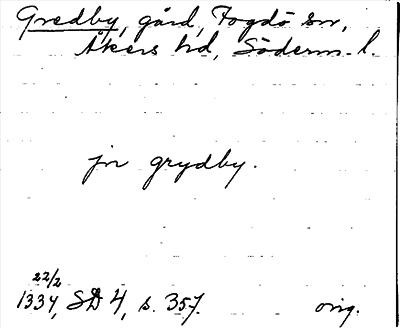 Gredby, gård, Fogdö sn,
Åkers hd, Söderm. l.
jn grydby.
22/2
1334, SD 4, s. 357. orig.